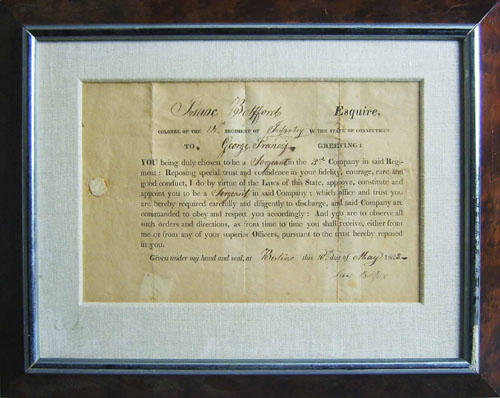 Isaac Botsford Esquire,
COLONEL OF THE REGIMENT OF Infantry IN THE STATE OF CONNECTICUT.
TO George Francis GREETING:
YOU being duly chosen to be a Sergeant in the 3rd Company in said Regi-
ment: Reposing special trust and confidence in your fidelity, courage, care and
good conduct, I do by virtue of the Laws of this State, approve, constitute and
appoint you to be a Sergeant in said Company; which office and trust you
are hereby required carefully and diligently to discharge, and said Company are
commanded to obey and respect you accordingly: And you are to observe all
such orders and directions, as from time to time you shall receive, either from
me or from any of your superior Officers, pursuant to the trust hereby reposed
in you.
Given under my hand and seal, at Berlin this day of May